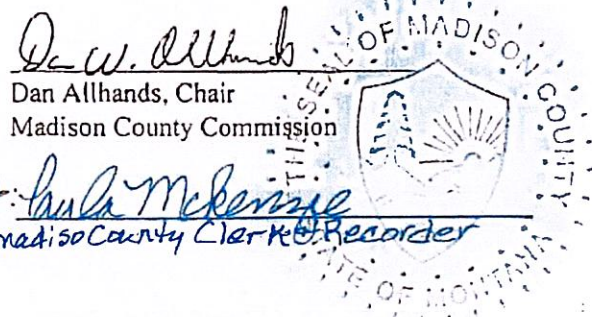 Dan W. Allhands
Dan Allhands, Chair
Madison County Commission
Paula McKenzie
madiso County Clerk & Recorder
THE SEAL OF MADISON COUNTY
STATE OF MONTANA